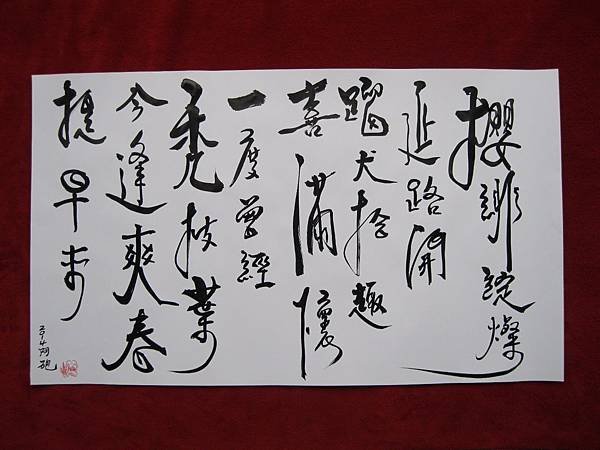 櫻綻燦
延路開
蹓犬拾趣
喜滿懷
一度曾經
禿枝葉
今逢爽春
提早來